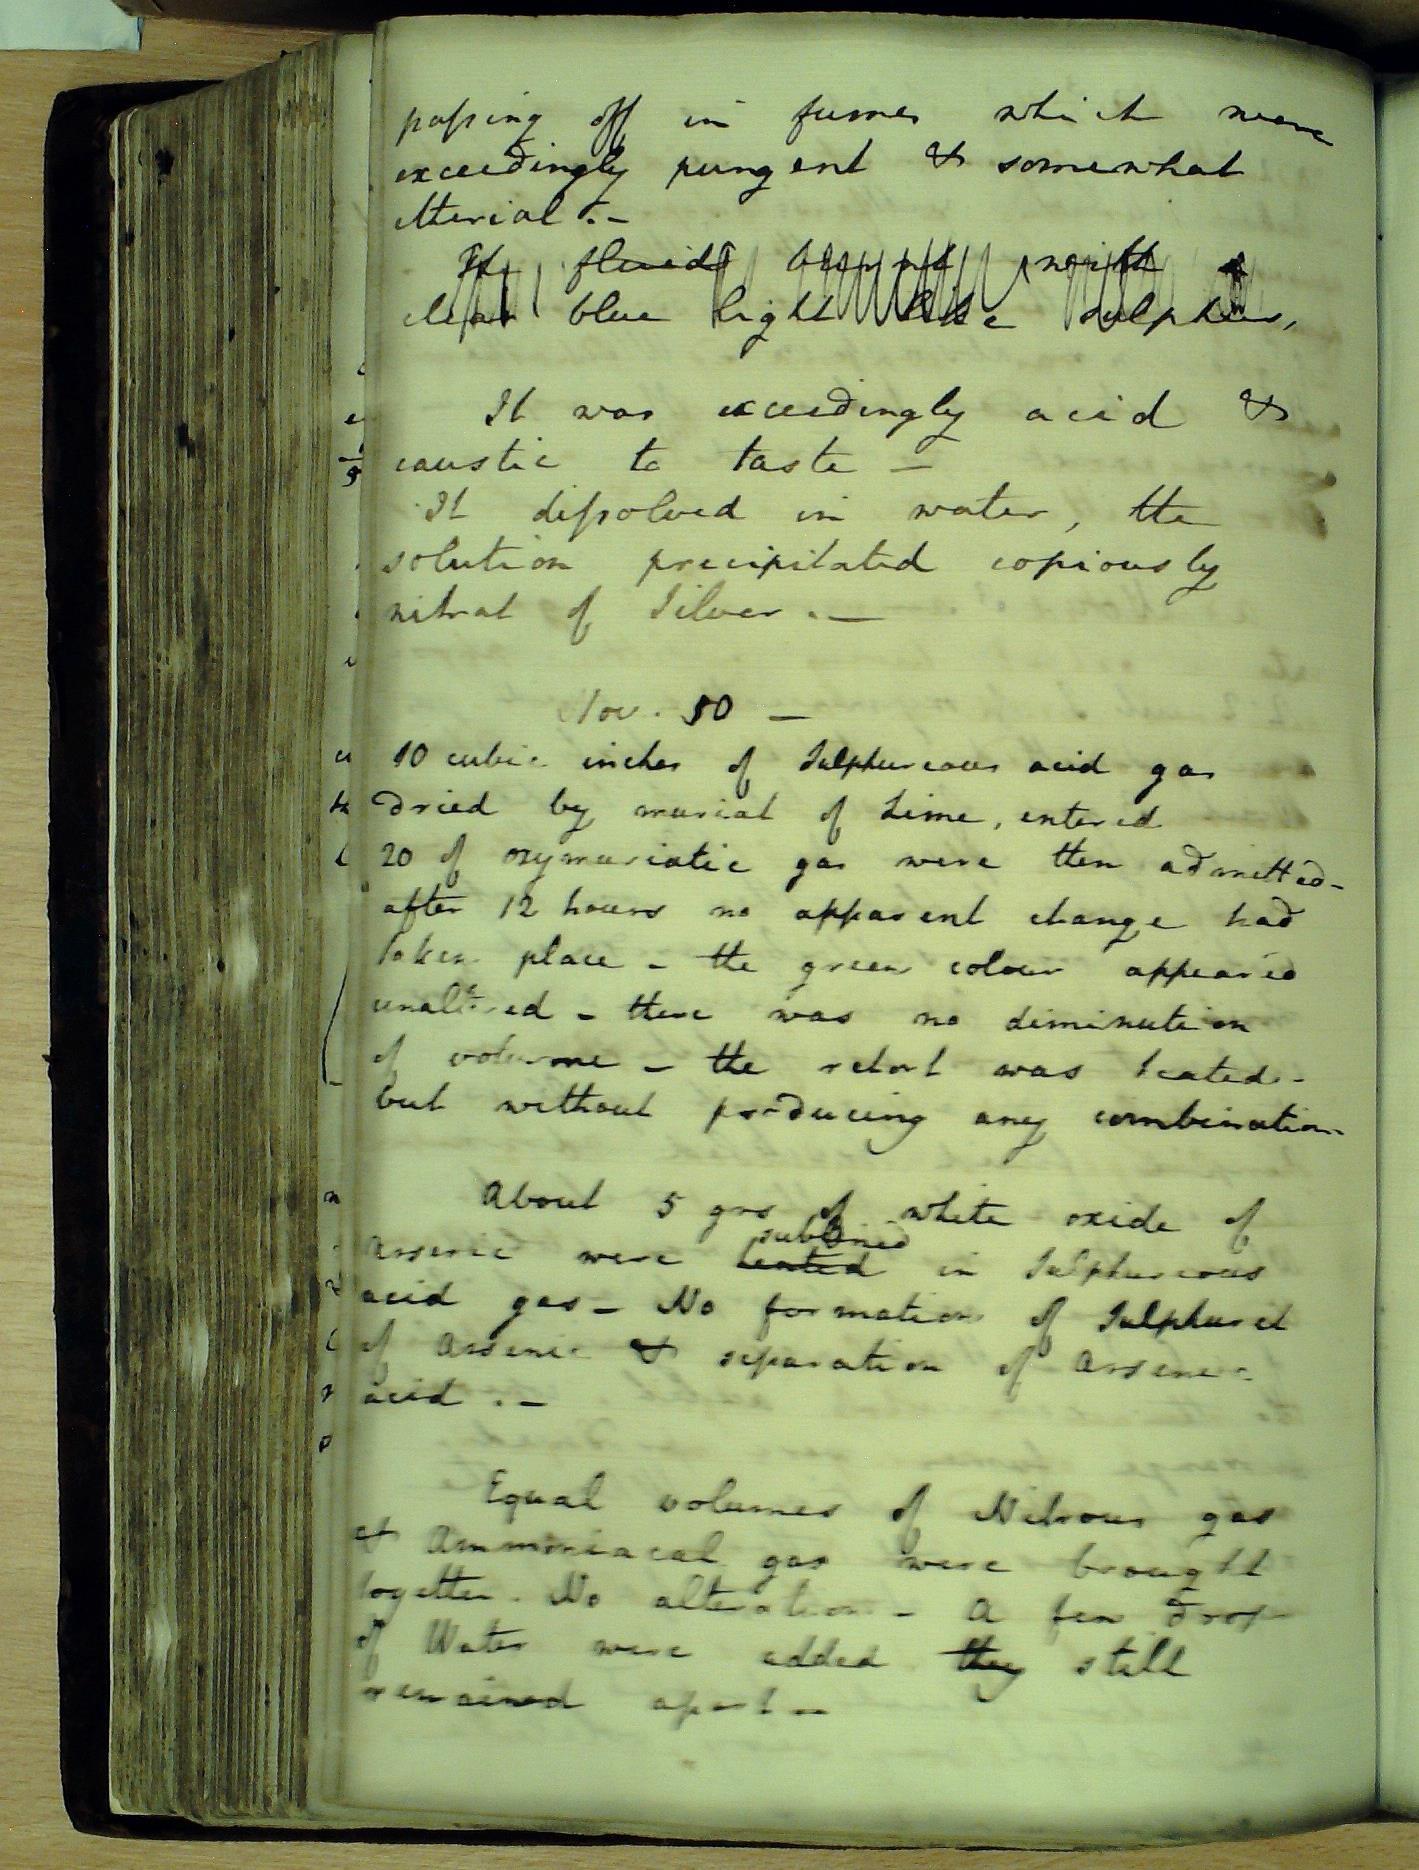 passing off in fumes which were
exceedingly pungent & somewhat
etherial .-
The fluid burnt with a
clear blue light like sulphur,
It was exceedingly acid &
caustic to taste -
It dissolved in water, the
solution precipitated copiously
nitrat of Silver . —
Nov. 30 —
10 cubic inches of Sulphureous acid gas
dried by muriat of Lime, entered
20 of oxymuriatic gas were then admitted -
after 12 hours no apparent change had
taken place - the green colour appeared
unaltered - there was no diminution
of volume - the retort was heated -
but without producing any combination -
About 5 grs of white oxide of
sublimed
Arsenic were heated in Sulphureous
acid gas - No formation of Sulphuret
of Arsenic & separation of Arsenic
acid . -
Equal volumes of Nitrous gas
& Ammoniacal gas were brought
together. No alteration - A few drops
of Water were added they still
remained apart -